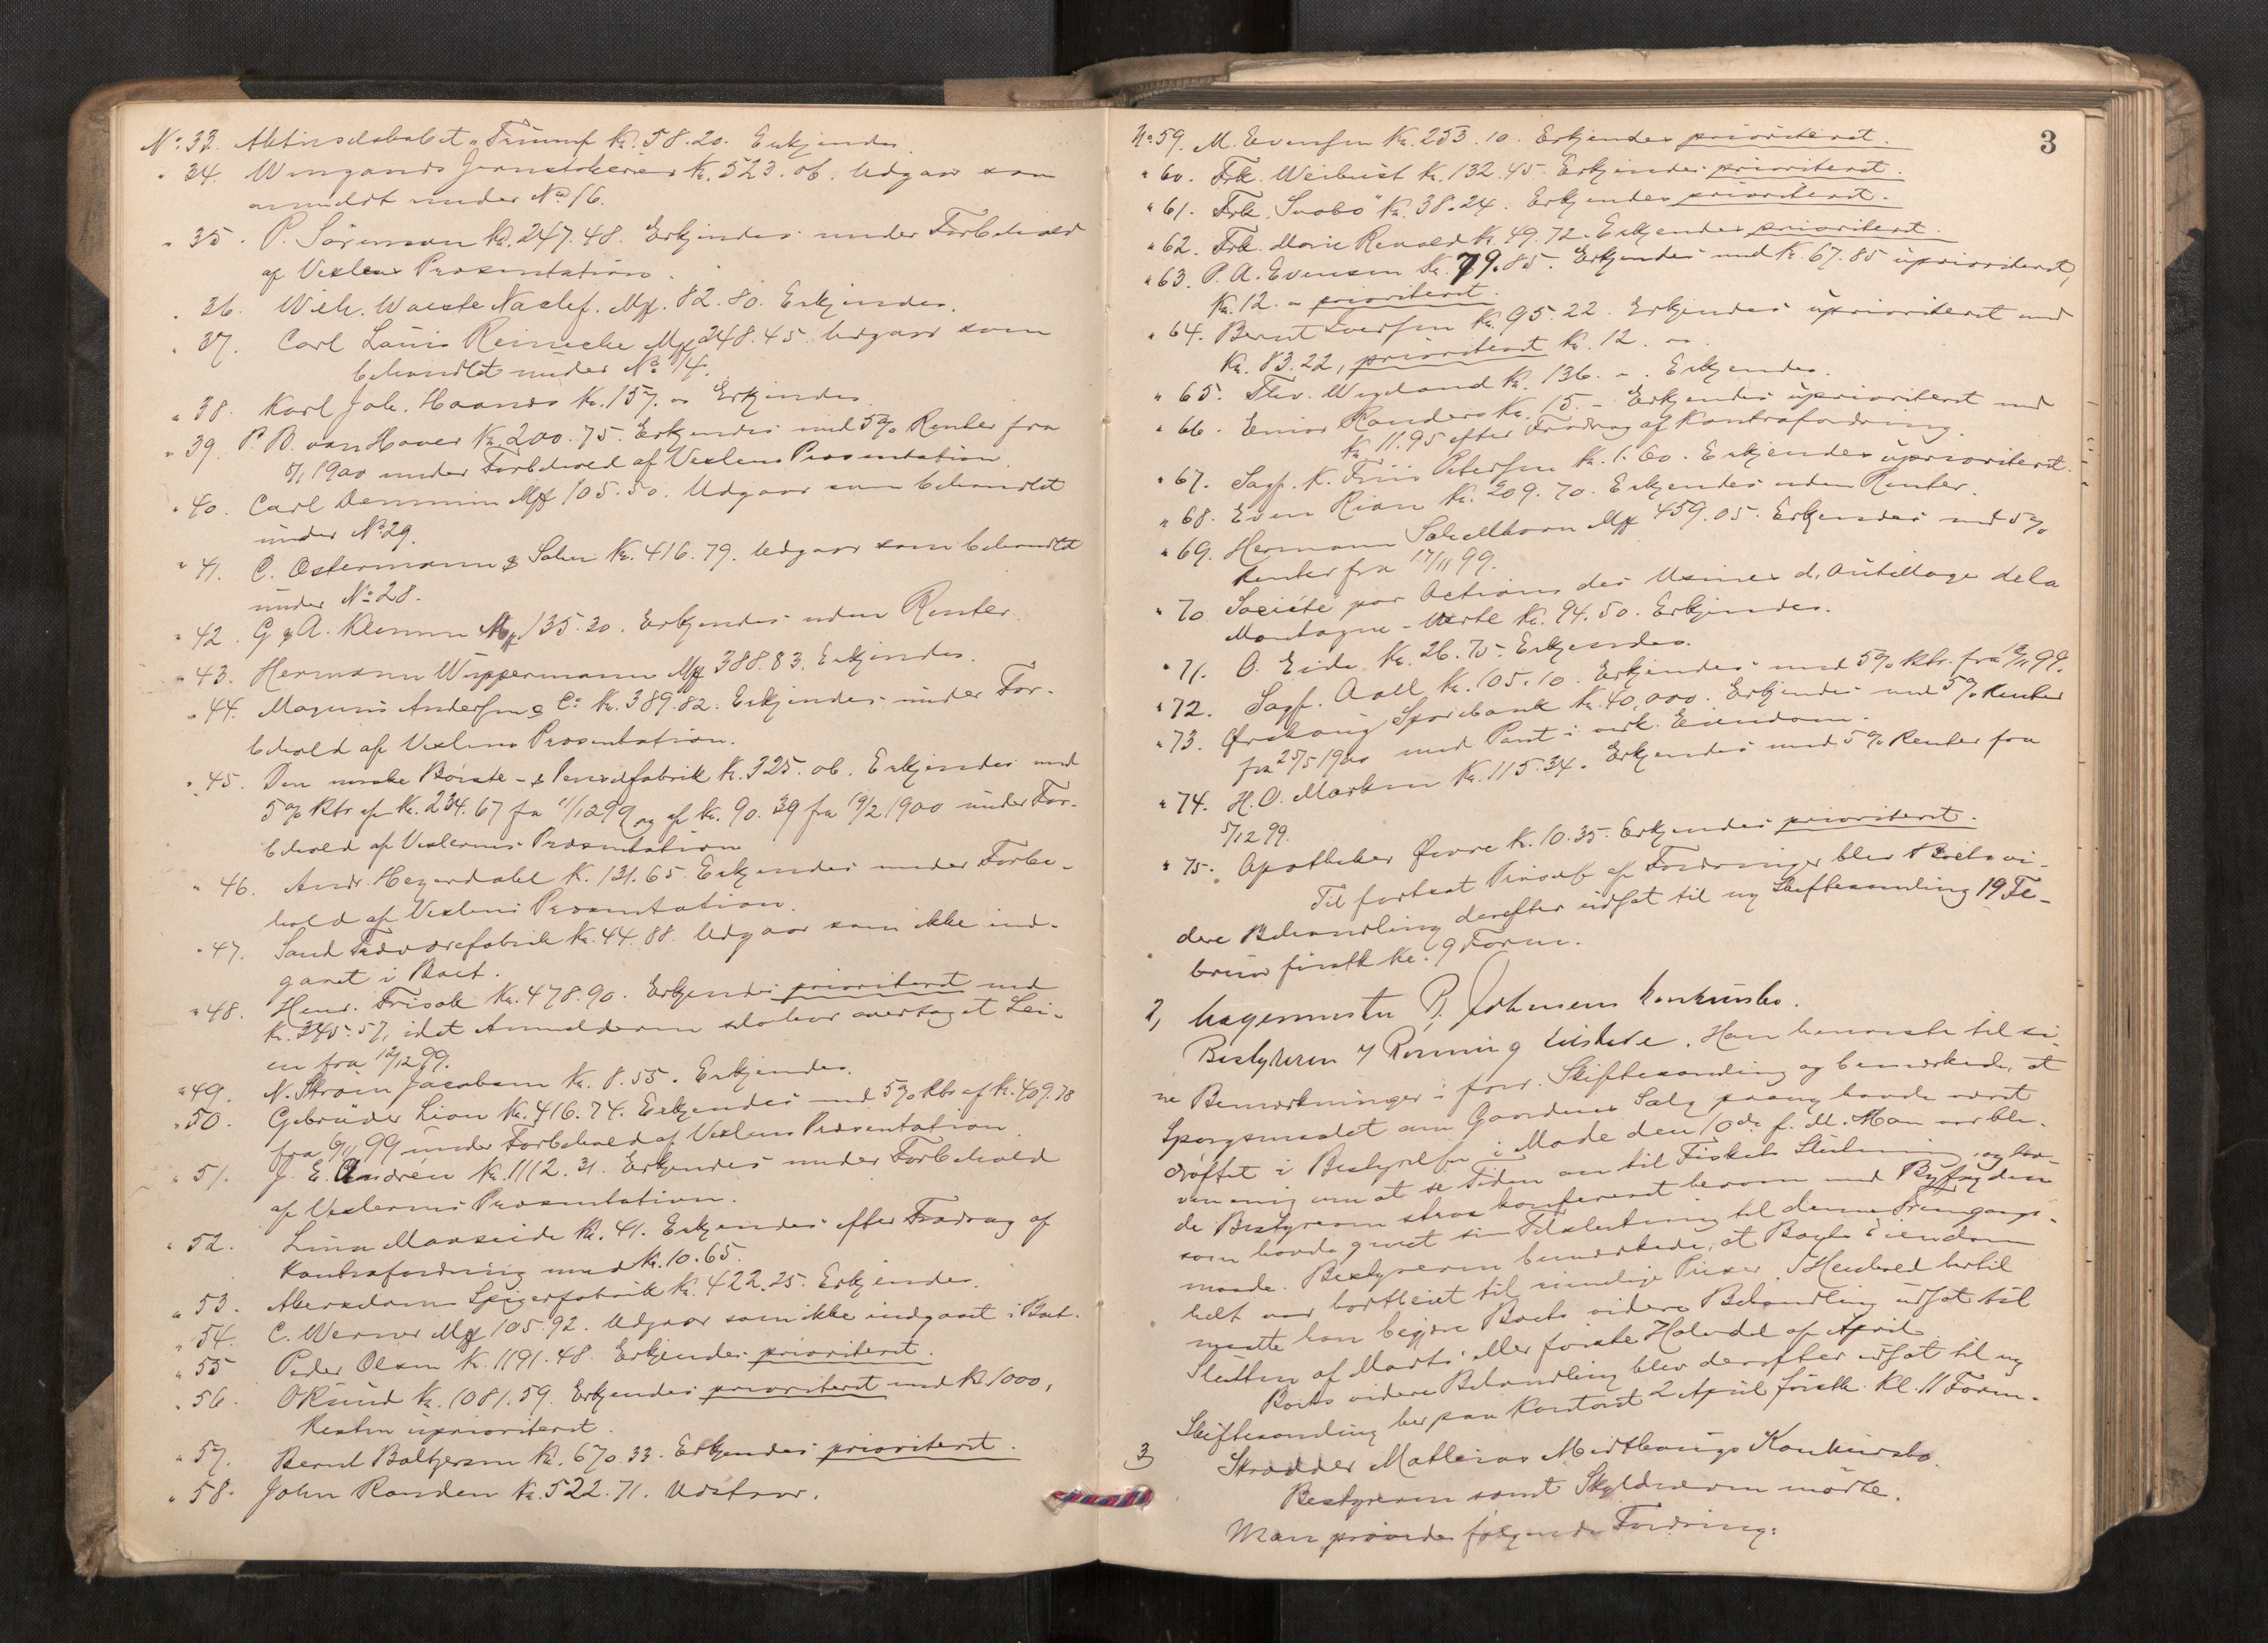 No 33. Aktieselskabet „Triumf Kr. 58.20. Erkjendes.
" 34. Wingaards Jernstøberi Kr. 523.06. Udgaar som
anmeldt under No 16.
" 35. P. Sørensen Kr. 247.48. Erkjendes under Forbehold
af Vexlens Præsentation.
" 36. Wilh. Woeste Nachf. Mk. 82.80. Erkjendes.
" 37. Carl Louis Reinecke Mk 248.45. Udgaar som
behandlet under No 14.
" 38. Karl Joh. Haanes Kr. 157. " Erkjendes.
" 39. P. B. van Houer Kr. 200.75. Erkjendes med 5% Renter fra
5/1 1900 under Forbehold af Vexlens Præsentation.
" 40. Carl Demmin Mk 105.50. Udgaar som behandlet
under No 29.
" 41. C. Ostermann & Sohn Kr. 416.79. Udgaar som behandlet
under No 28.
" 42. G & A. Klemm Mk 135.20. Erkjendes uden Renter.
" 43. Hermann Wuppermann Mk 388.83. Erkjendes.
" 44. Magnus Andersen & Co Kr. 389.82. Erkjendes under For-
behold af Vexlens Præsentation.
" 45. Den norske Børste- & Penselfabrik Kr. 325.06. Erkjendes med
5% Rtr af Kr. 234.67 fra 11/12 99 og af Kr. 90.39 fra 19/2 1900 under For-
behold af Vexlernes Præsentation
" 46. Andr. Hegerdahl Kr. 131.65. Erkjendes under Forbe-
hold af Vexlens Præsentation.
" 47. Sand Trævarefabrik Kr. 44.88. Udgaar som ikke ind-
gaaet i Boet.
" 48. Henr. Frisak Kr. 478.90. Erkjendes prioriteret med
Kr. 345.57, idet Anmelderen selv har overtaget Lei-
en fra 12/12 99.
" 49. N. Strøm Jacobsen Kr. 8.55. Erkjendes.
" 50. Gebrüder Lion Kr. 416.74. Erkjendes med 5% Rtr af Kr. 409.78
fra 6/11 99 under Forbehold af Vexlens Præsentation.
" 51. J. E. Andrén Kr. 1112.31. Erkjendes under Forbehold
af Vexlernes Præsentation.
" 52. Lina Kr. 41. Erkjendes efter Fradrag af
Kontrafordring med Kr. 10.65.
" 53. Spigerfabrik Kr. 422.25. Erkjendes.
" 54. C. Werner Mk 105.92. Udgaar som ikke indgaaet i Boet.
" 55 Peder Olsen Kr. 1191.48. Erkjendes prioriteret.
" 56. O Rsund Kr. 1081.59. Erkjendes prioriteret med Kr 1000,
Resten uprioriteret.
" 57. Bernt Baltzersen Kr. 670.33. Erkjendes prioriteret.
" 58. John Randen Kr. 522.71. Udstaar.
3
No 59. M. Evensen Kr. 253.10. Erkjendes prioriteret.
" 60. Frk. Weibust Kr. 132.45. Erkjendes prioriteret.
" 61. Frk. Kr. 38.24. Erkjendes prioriteret.
" 62. Frk. Marie Kr. 49.72. Erkjendes prioriteret.
" 63. P. A. Evensen Kr. 79.85. Erkjendes med Kr. 67.85 uprioriteret,
Kr. 12. " prioriteret.
" 64. Bernt Iversen Kr. 95.22. Erkjendes uprioriteret med
Kr. 83.22, prioriteret Kr. 12. "
" 65. Thv. Wegeland Kr. 136. ". Erkjendes.
" 66. Einar Randers Kr. 15. – Erkjendes uprioriteret med
Kr 11.95 efter Fradrag af Kontrafordring.
" 67. Sagf. K. Friis Petersen Kr. 1.60. Erkjendes uprioriteret.
" 68. Even Rian Kr. 209.70. Erkjendes uden Renter.
" 69. Hermann Schellhorn Mk 459.05. Erkjendes med 5%
Renter fra 17/11 99.
" 70 Société par Actions des Usines d. de la
Montagne-Verte Kr. 94.50. Erkjendes.
" 71. O. Eide Kr. 26.70. Erkjendes.
" 72. Sagf. Aall Kr. 105.10. Erkjendes med 5% Rtr. fra 99.
" 73. Ørskoug Sparebank Kr. 40,000. Erkjendes med 5% Renter
fra 25/5 1900 med Pant i Eiendom.
" 74. H. O. Marken Kr. 115.34. Erkjendes med 5% Renter fra
5/12 99.
" 75. Apotheker Øwre Kr. 10.35. Erkjendes prioriteret.
Til fortsat Prøvelse af Fordringer blev Boets vi-
dere Behandling derefter udsat til ny Skiftesamling 19 Fe-
bruar førstk Kl. 9 Form.
2, Bagermester P. Johnsens Konkursbo.
Bestyreren Rønning tilstede. Han henviste til si-
ne Bemærkninger i forr. Skiftesamling og bemærkede, at
Spørgsmaalet om Gaardens Salg paany havde været
drøftet i Bestyrelsen i Møde den 10de f. M. Man var ble-
ven enig om at se Tiden an til Fiskets Slutning, og hav-
de Bestyreren strax konfereret herom med Byfogden
som havde givet sin Tilslutning til denne Fremgangs-
maade. Bestyreren bemærkede, at Boets Eiendom
helt var bortleiet til rimelige Priser. I Henhold hertil
maatte han begjære Boets videre Behandling udsat til
Slutten af Marts eller første Halvdel af April.
Boets videre Behandling blev derefter udsat til ny
Skiftesamling her paa Kontoret 2 April førstk. Kl. 11 Form.
3 Skrædder Mathias Midthaugs Konkursbo.
Bestyreren samt Skyldneren mødte.
Man prøvede følgende Fordring: